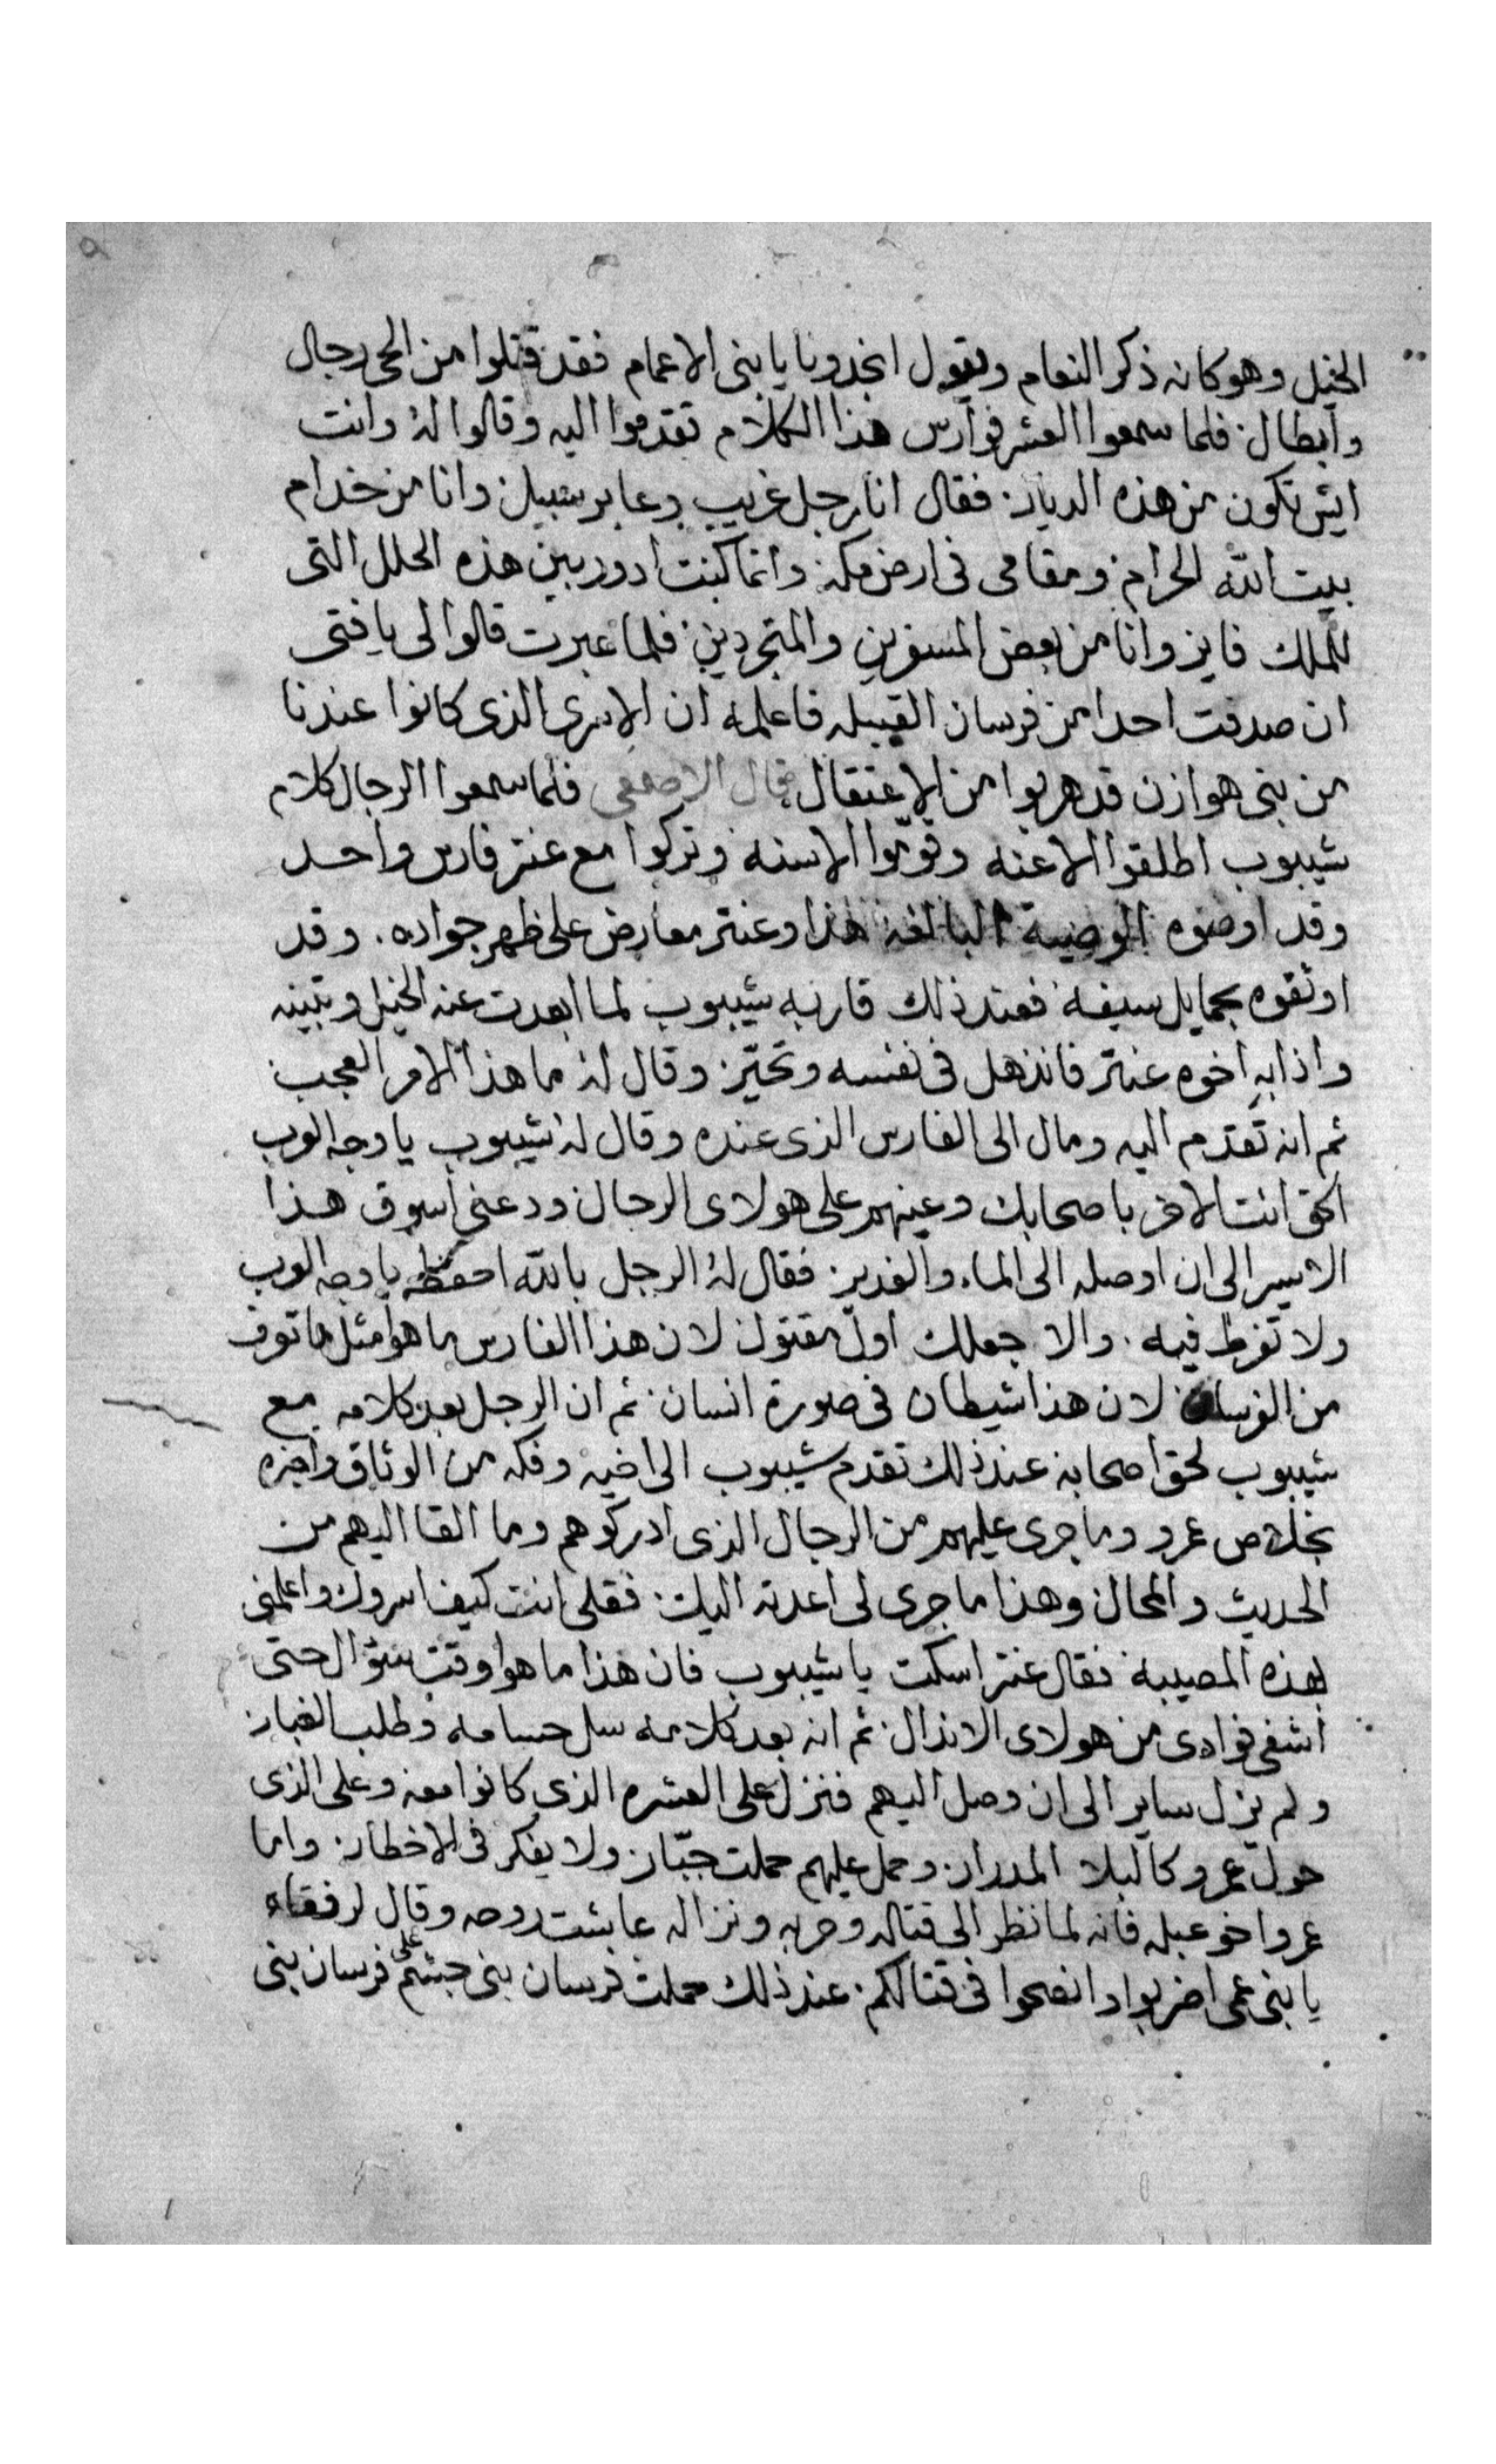 الخيل وهو كانه ذكر النعام ويقول انجدونا يا بنى الاعمام فقد قتلوا من الحى رجال
وابطال فلما سمعوا العشر فوارس هذا الكلام تقدموا اليه وقالوا له وانت
ايش تكون من هذه الديار فقال انا رجل غريب وعابر سبيل وانا من خدام
بيت الله الحرام ومقامى فى ارض مكه وانما كنت ادور بين هذه الحلل التى
للملك فايز وانا من بعض المسفرين والمتجردين فلما عبرت قالوا لى يا فتى
ان صدفت احدا من فرسان القبيله فاعلمه ان الاسرى الذى كانوا عندنا
من بنى هوازن قد هربوا من الاعتقال قال الاصمعى فلما سمعوا الرجال كلام
شيبوب اطلقوا الاعنه وقوموا الاسنه وتركوا مع عنتر فارس واحد
وقد اوصوه الوصية البالغه هذا وعنتر معارض على ظهر جواده وقد
اوثقوه بحمايل سيفه فعند ذلك قاربه شيبوب لما ابعدت عنه الخيل وتبينه
واذا به اخوه عنتر فانذهل فى نفسه وتحير وقال له ما هذا الامر العجب
ثم انه تقدم اليه ومال الى الفارس الذى عنده وقال له شيبوب يا وجه العرب
الحق انت الاخر باصحابك وعينهم على هولاى الرجال ودعنى اسوق هذا
الاسير الى ان اوصله الى الماء والغدير فقال له الرجل بالله احفظه يا وجه العرب
ولا تفرط فيه والا جعلك اول مقتول لان هذا الفارس ما هو مثل ما تعرف
من الفرسان لان هذا شيطان فى صورة انسان ثم ان الرجل بعد كلامه مع
شيبوب لحق اصحابه عند ذلك تقدم شيبوب الى اخيه وفكه من الوثاق واخبره
بخلاص عمرو وما جرى عليهم من الرجال الذى ادركوهم وما القا اليهم من
الحديث والمحال وهذا ما جرى لى اعدته اليك فقلى انت كيف اسروك واعلمنى
بهذه المصيبه فقال عنتر اسكت يا شيبوب فان هذا ما هو اوقت سؤال حتى
اشفى فوادى من هولاى الاندال ثم انه بعد كلامه سل حسامه وطلب الغبار
ولم يزل ساير الى ان وصل اليهم فنزل على العشره الذى كانوا معه وعلى الذى
حول عمرو كالبلا المدرار وحمل عليهم حملت جبار ولا يفكر فى الاخطار واما
عمرو اخو عبله فانه لما نظر الى قتاله وحربه ونزاله عايشت روحه وقال لرفقاه
يا بنى عمى اضربوا وانصحوا فى قتالكم عند ذلك حملت فرسان بنى جشم على فرسان بنى